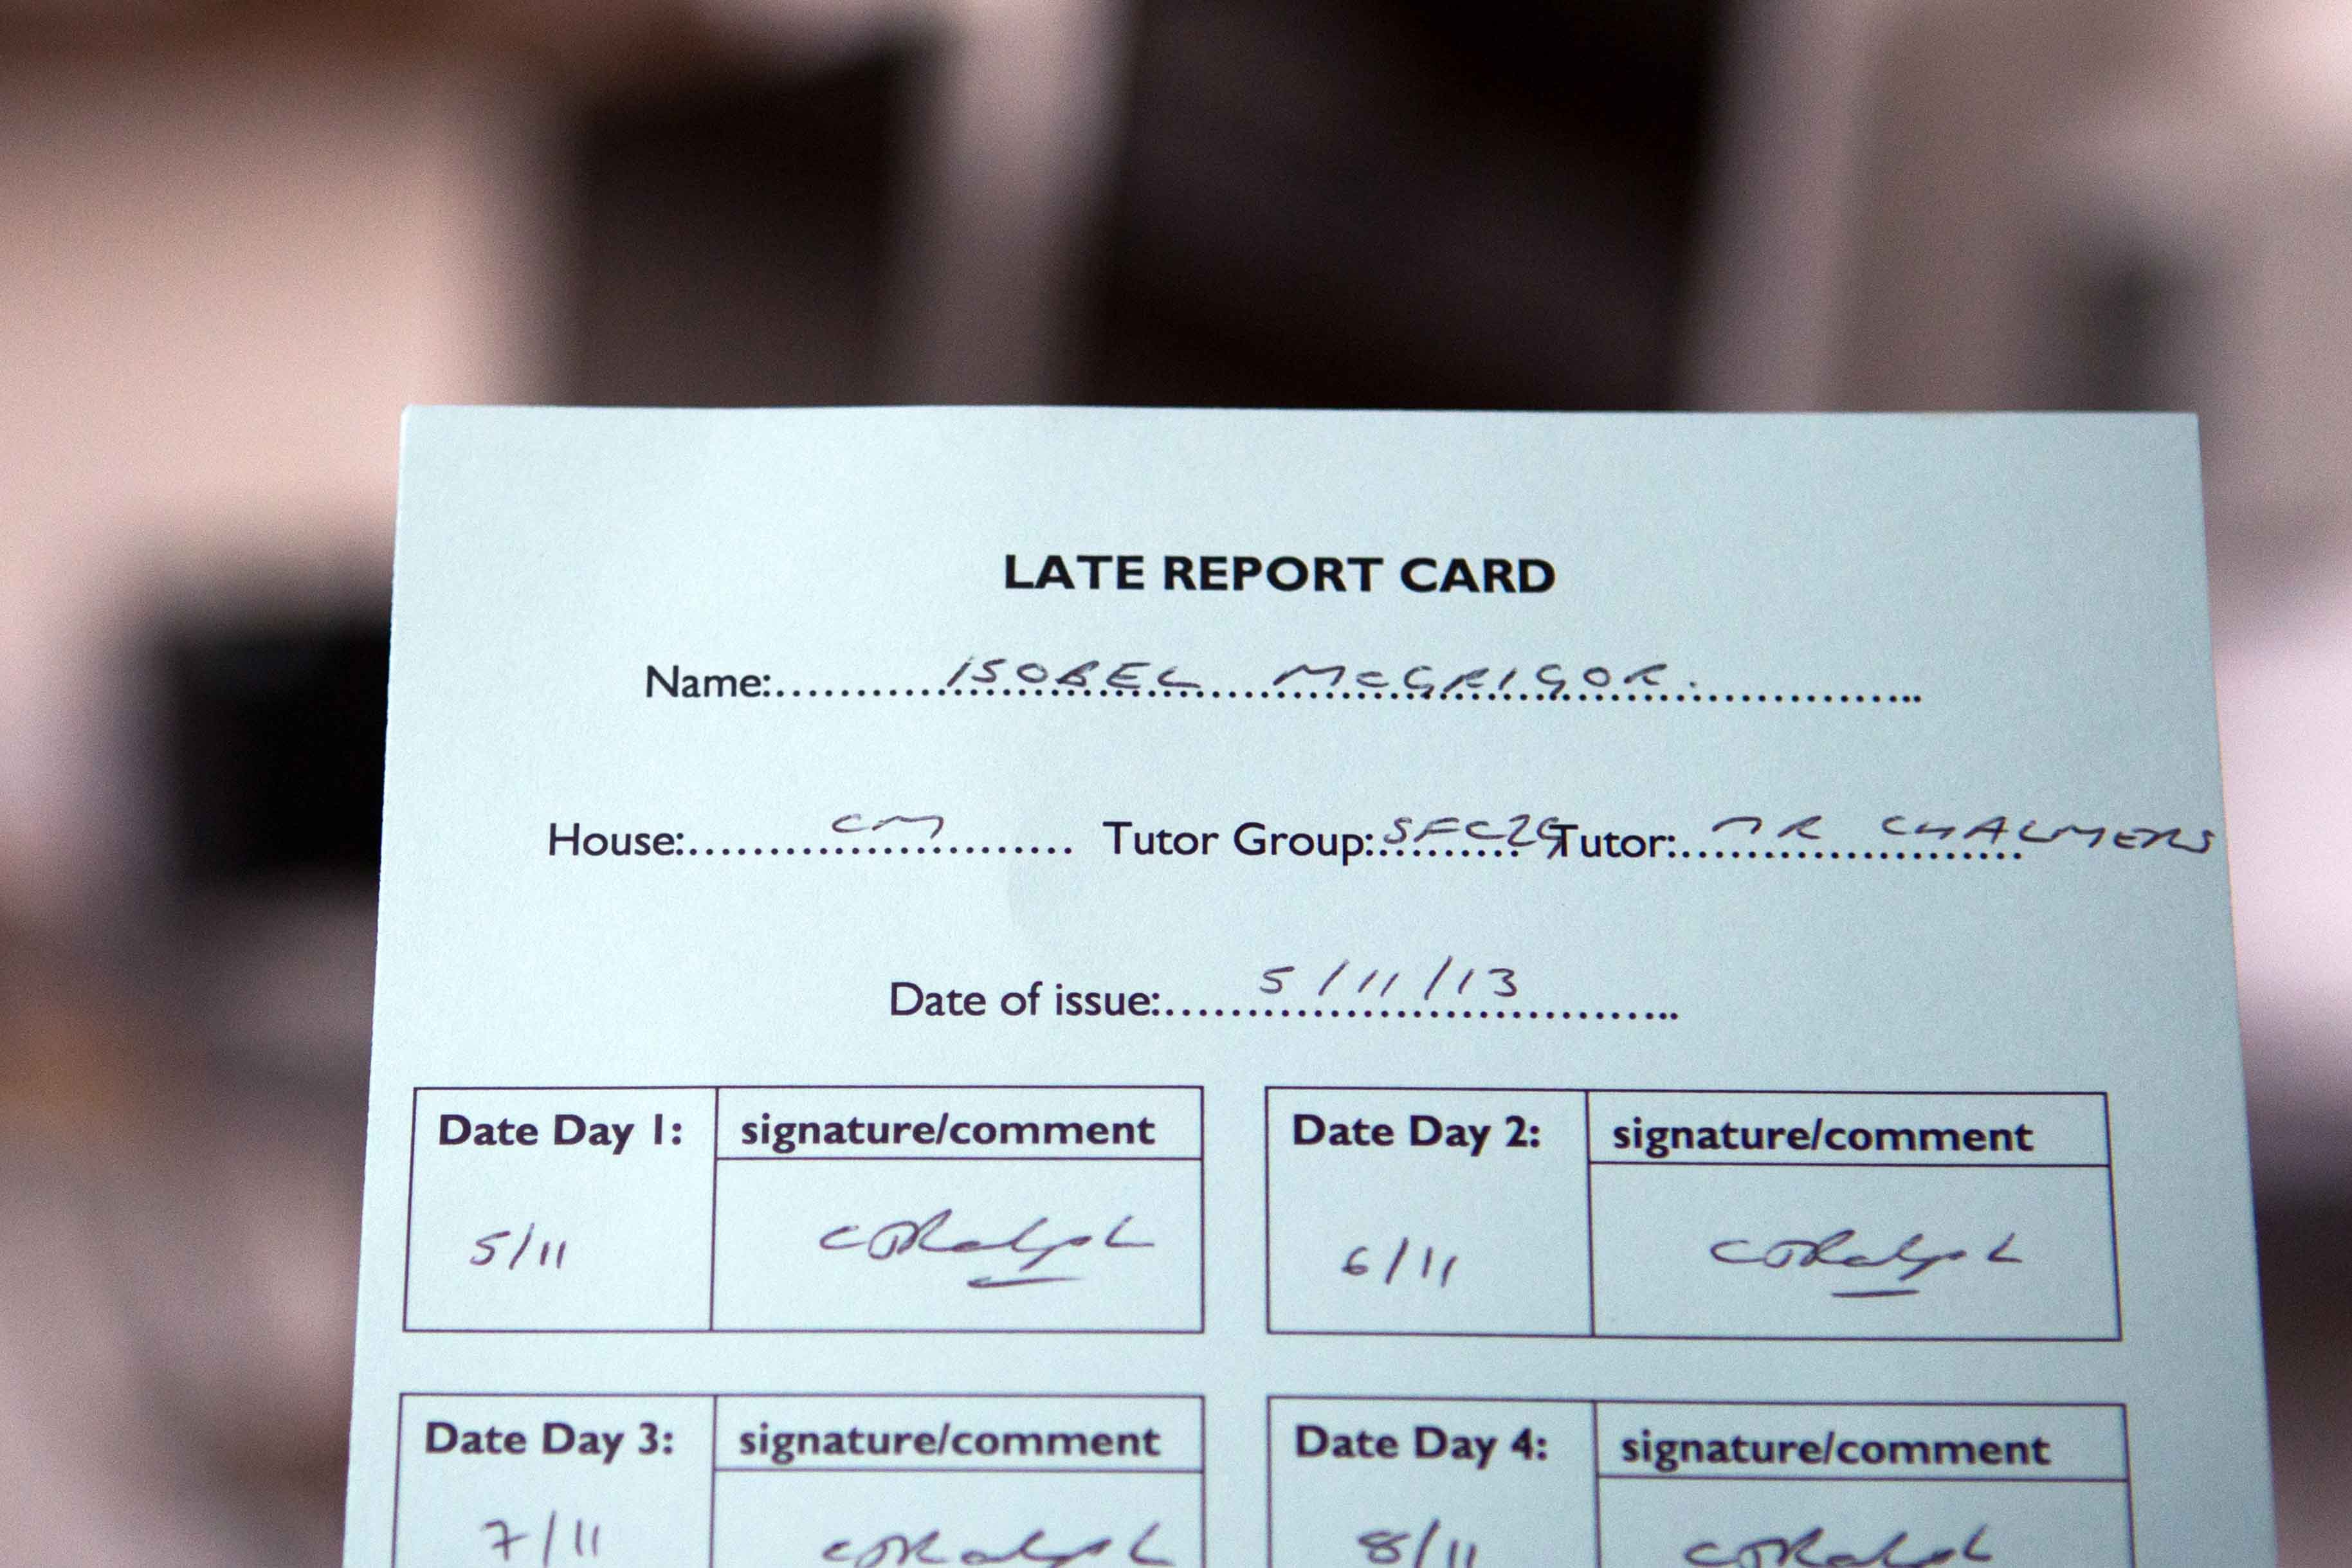 LATE REPORT CARD
Name:.....ISOBEL McGRIGOR.....
House:.....CM..... Tutor Group:.....SFC29 Tutor:.....MR CHALMERS
Date of issue:.....5/11/13.....
Date Day 1: signature/comment Date Day 2: signature/comment
5/11 CJRalph 6/11 CJRalph
Date Day 3: signature/comment Date Day 4: signature/comment
7/11 CJRalph 8/11 CJRalph